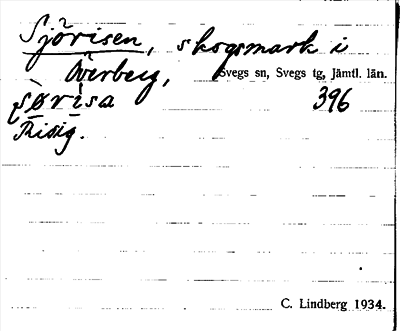 Sjörisen, skogsmark i
Överberg, Svegs sn, Svegs tg, Jämtl. län.
396
Risig.
C. Lindberg 1934.